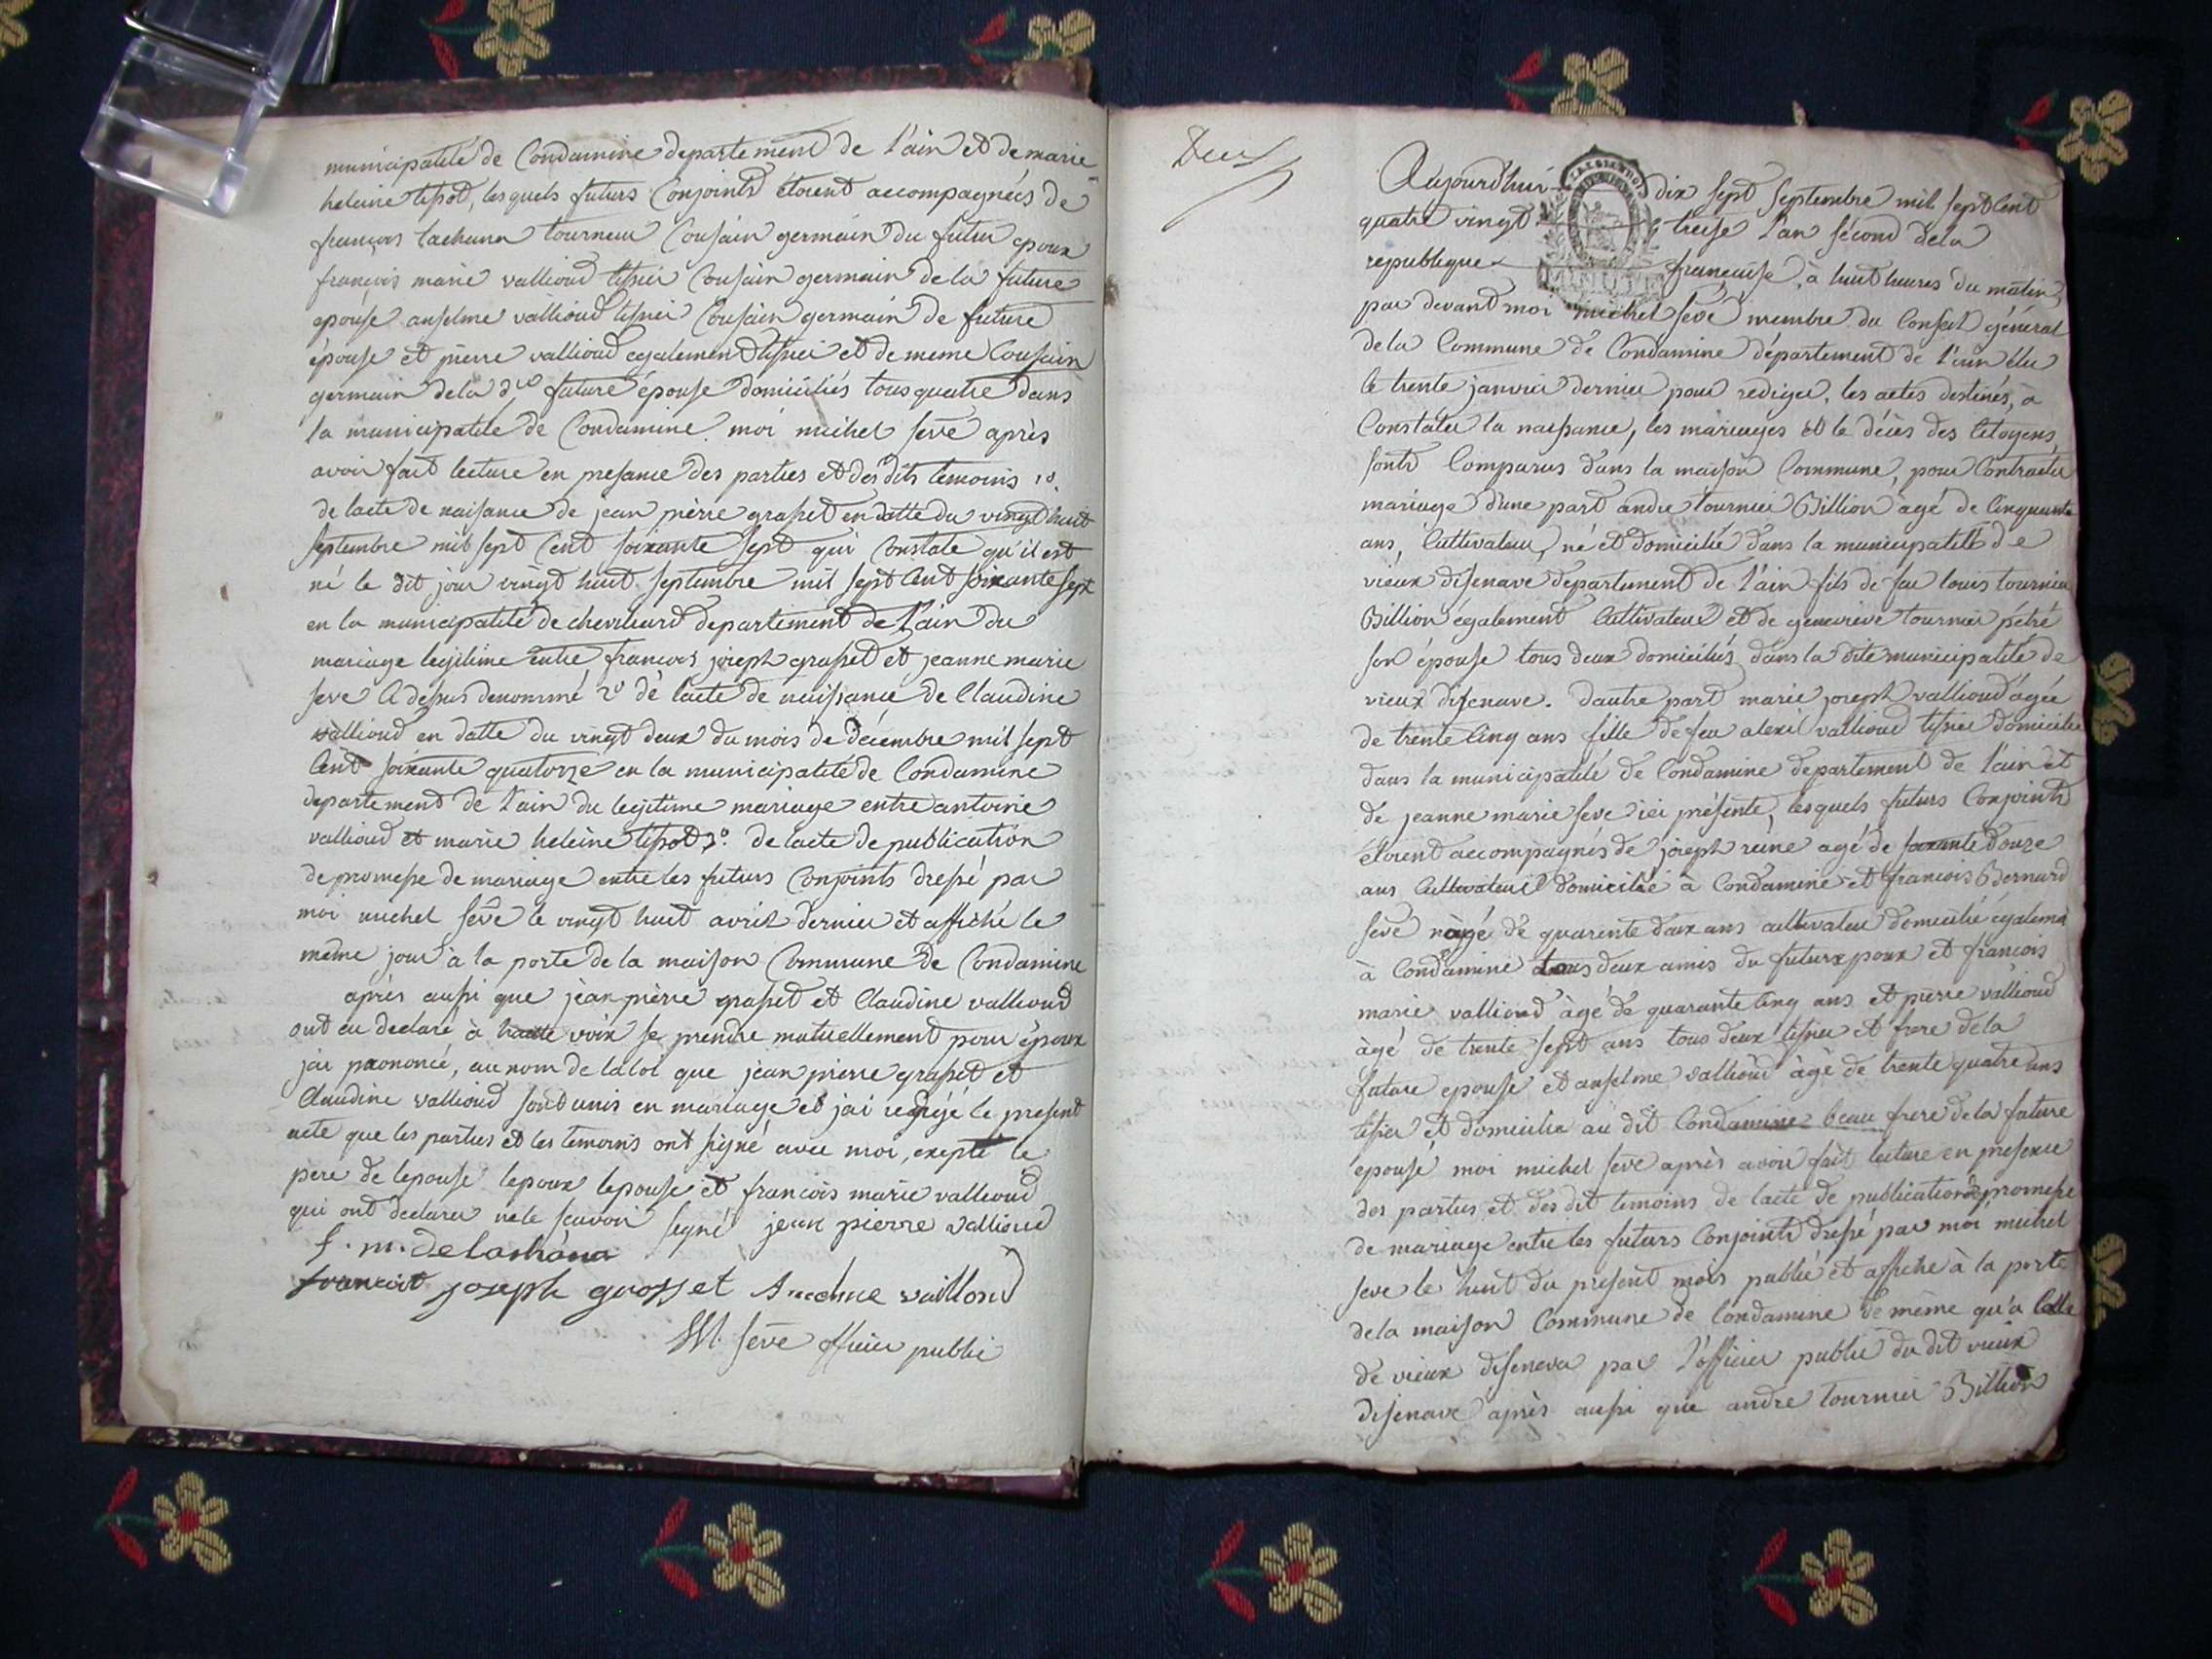 municipalité de Condamine departement de l'ain et de marie
heleine tissot, lesquels futurs Conjoints étoient accompagnées de
françois tourneur Cousain germain du futur epoux
françois marie vallioud tissier Cousain germain de la future
epouse anselme vallioud tissier Cousain germain de future
épouse et pierre vallioud egalement tissier et de meme Cousain
germain de la d.te future épouse domiciliés tous quatre dans
la municipalité de Condamine. moi michel seve après
avoir fait lecture en presance des parties et des dits temoins 1º.
de lacte de naisance de jean pierre grasset en datte du vingt huit
septembre mil sept Cent soixante sept qui Constate qu'il est
né le dit jour vingt huit septembre mil sept Cent soixante sept
en la municipalité de departement de l'ain du
mariage legitime entre francois joseph grasset et jeanne marie
seve Ci dessus denommé 2º de lacte de naissance de Claudine
vallioud en datte du vingt deux du mois de décembre mil sept
Cent soixante quatorze en la municipalité de Condamine
departement de l'ain du legitime mariage entre antoine
vallioud et marie heleine tissot 3º. de lacte de publication
de promesse de mariage entre les futurs Conjoints dressé par
moi michel sève le vingt huit avril dernier et affiché le
même jour à la porte de la maison Commune de Condamine
après aussi que jean pierre grasset et Claudine vallioud
ont eu declaré à haute voix se prendre mutuellement pour époux
jai prononcé, au nom de la loi que jean pierre grasset et
Claudine vallioud sont unis en mariage et jai redigé le present
acte que les parties et les temoins ont signé avec moi, exepté le
pere de lepouse lepoux lepouse et francois marie vallioud
qui ont declarer ne le scavoir signé jean pierre vallioud
f. m. delachána
francoit joseph grosset vailloud
M. sève officier public
Aujourdhui dix sept septembre mil sept Cent
quatre vingt treise l'an sécond de la
republique française, à huit heures du matin
par devant moi michel sève membre du Conseil général
de la Commune de Condamine département de l'ain élu
le trente janvier dernier pour rediger, les actes destinés, à
Constater la naissance, les mariages et le décès des Citoyens,
sont Comparus dans la maison Commune, pour Contracter
mariage d'une part andre tournier Billion agé de Cinquante
ans, Cultivateur, né et domicilié dans la municipalité de
vieux disenave departement de l'ain fils de feu louis tournier
Billion également Cultivateur et de genevieve tournier pétré
son épouse tous deux domiciliés dans la dite municipalité de
vieux disenave. dautre part marie joseph vallioud agée
de trente Cinq ans fille de feu alexi vallioud tisser domicilié
dans la municipalité de Condamine departement de l'ain et
de jeanne marie seve ici présente, lesquels futurs Conjoints
étoient accompagnés de joseph reine agé de soixante douze
ans Cultivateur domicilié à Condamine et francois Bernard
sève agé de quarente deux ans cultivateur domicilié égalemen
à Condamine tous deux amis du futur epoux et francois
marie vallioud àgé de quarante Cinq ans et pierre vallioud
àgé de trente sept ans tous deux tissier et frere de la
future epouse et anselme vallioud àgé de trente quatre ans
tissier et domicilié au dit Condamine beau frere de la future
epouse moi michel seve après avoir fait lecture en presence
des parties et des dit temoins de lacte de publication de promesse
de mariage entre les futurs Conjoints dressé par moi michel
seve le huit du present mois publié et affiché à la porte
de la maison Commune de Condamine de même qu'a Celle
de vieux disenava par l'officier public du dit vieux
disenave après aussi que andre tournier Billion